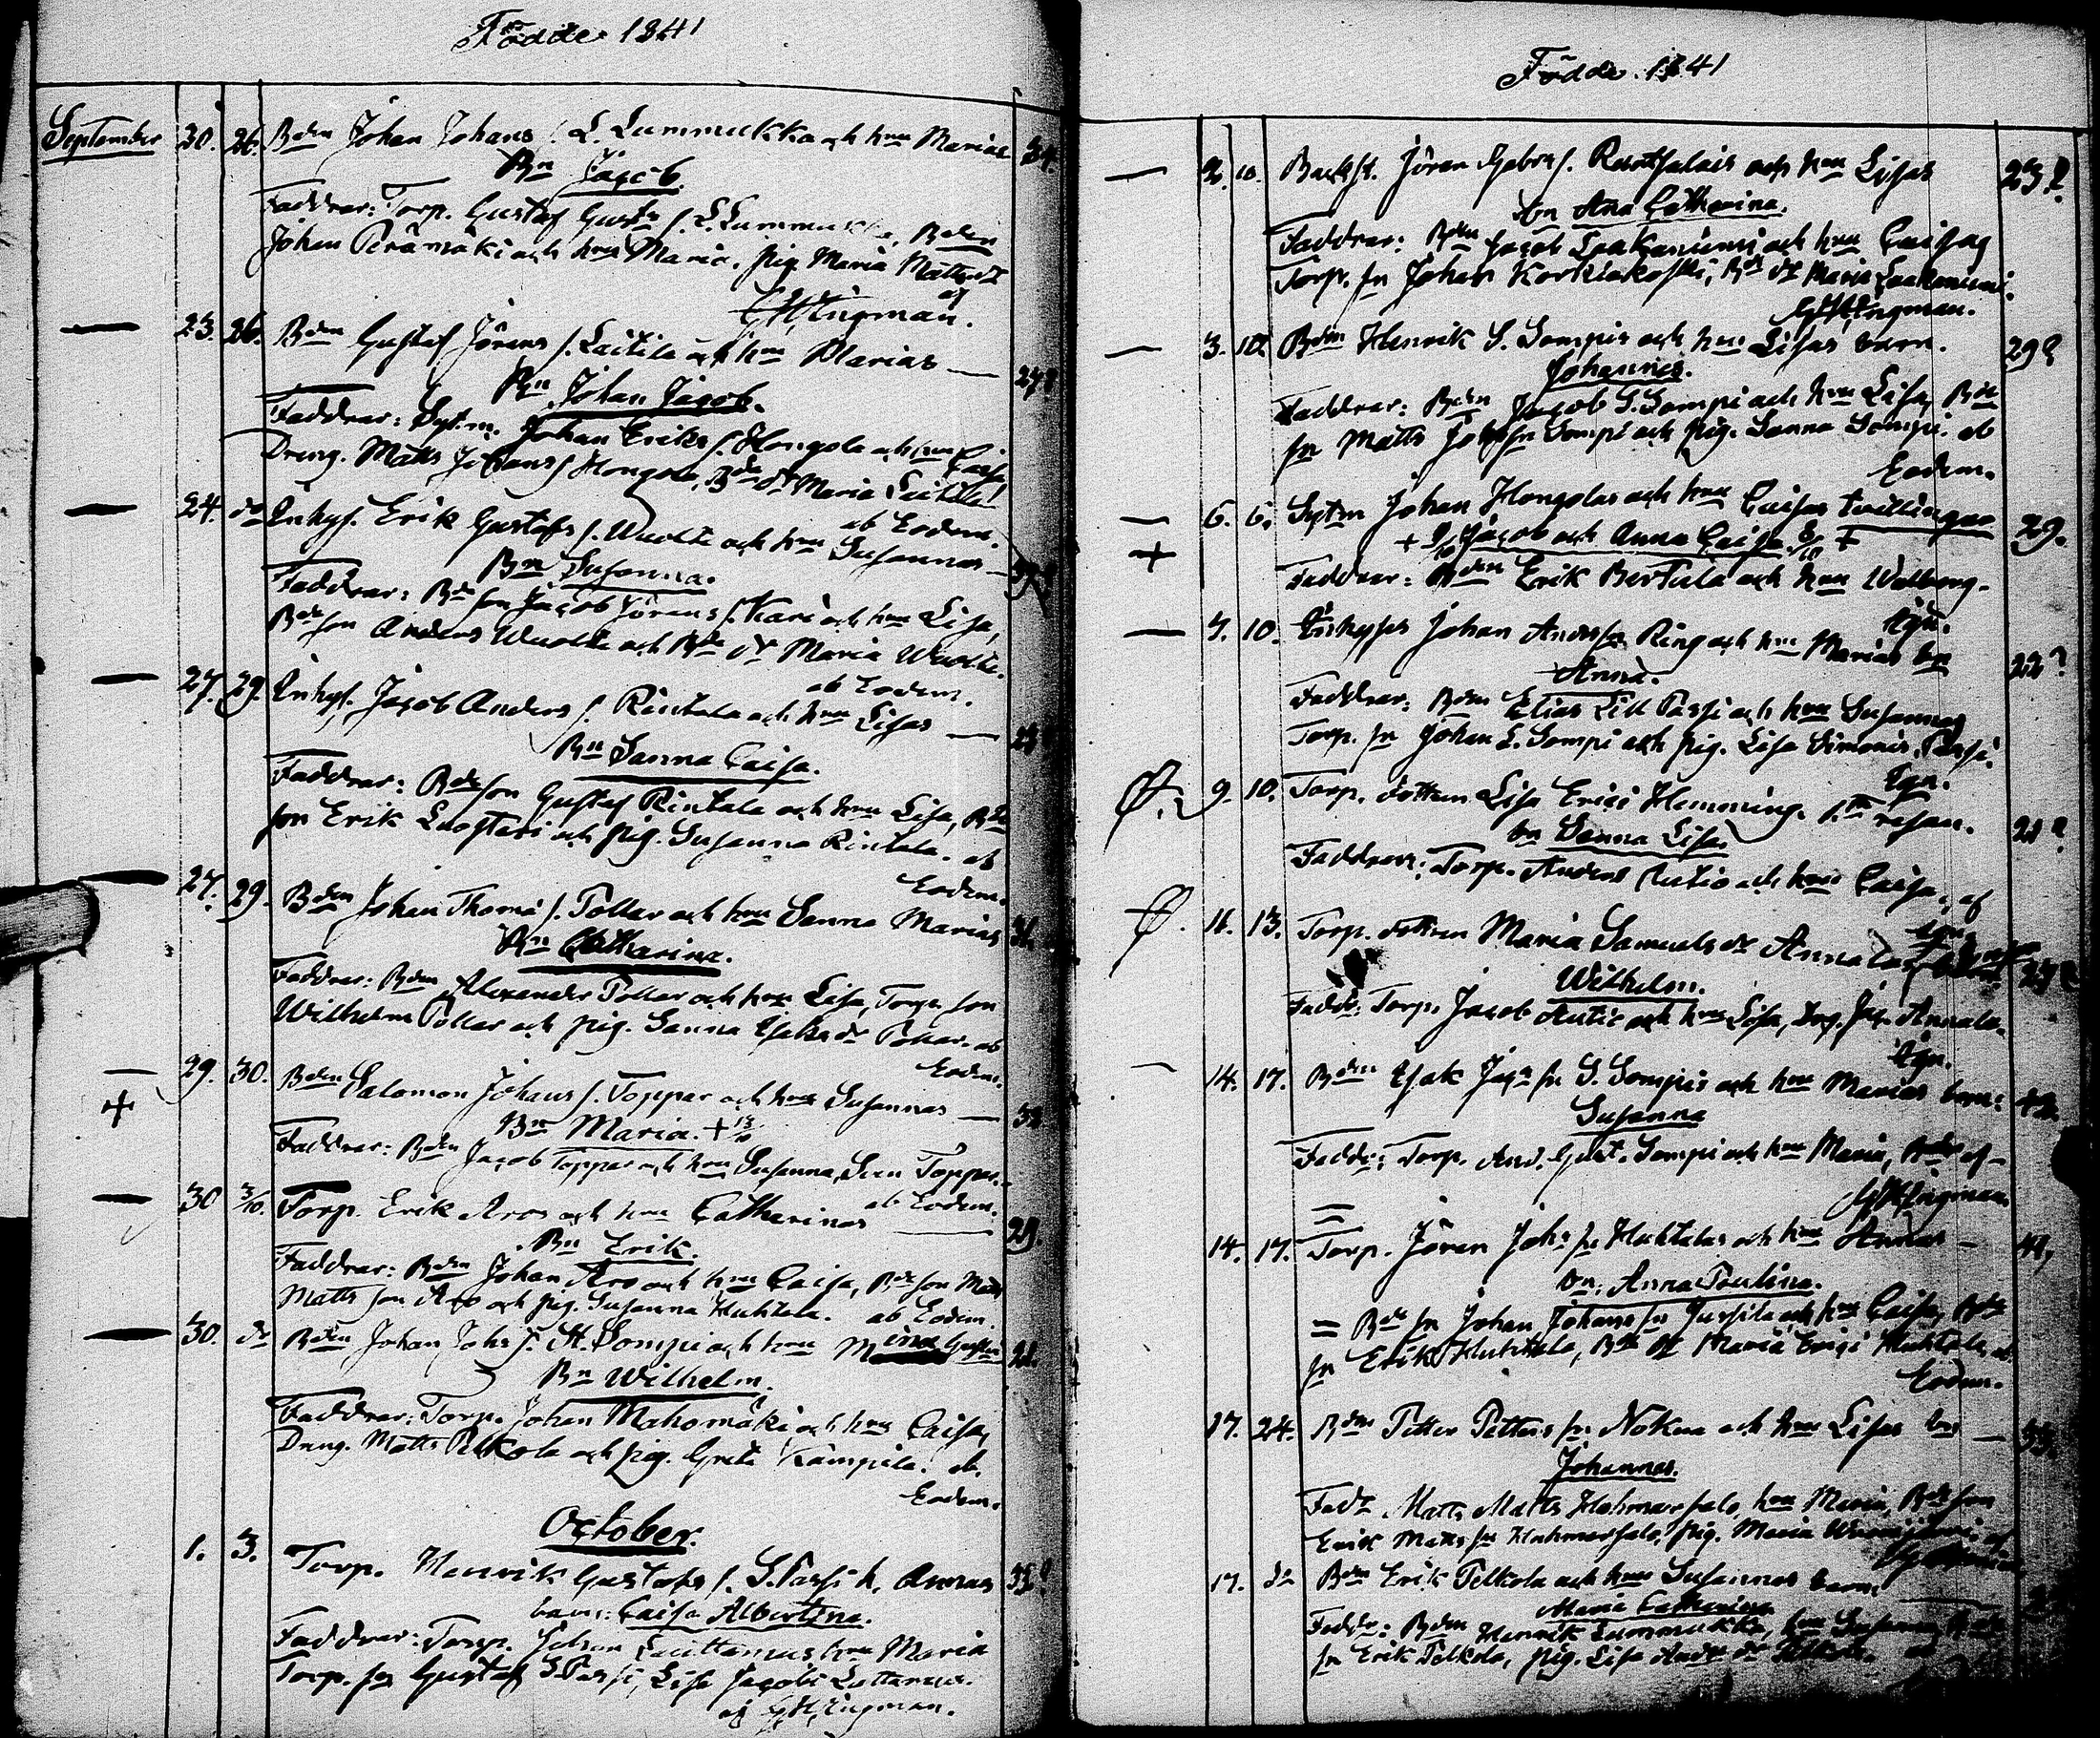 Födde 1841
September 30. 26. Bden Johan Johans s. L. Lummukka och hu Marias 34.
Bn Jacob.
Faddrar: Torp. Gustaf Gusts s. L. Lummukka, Bden
Johan Perämäki och hu Maria, pig. Maria Mattsdr
af
GHIngman.
— 23. 26. Bden Gustaf Jörans s. Laitila och hu Marias — 27
Bn Johan Jacob.
Faddrar: Sytm. Johan Eriks s. Hongola och hu Caisa
Dreng. Matts Johans s Hongola, Bde dr Maria Laitila
ab Eodem.
— 24. do Inhys. Erik Gustafs s. Wuolle och hu Susannas —
Bn Susanna.
Faddrar: Bde son Jacob Jörans s. Kari och hu Lisa,
Bde son Anders Wuolle och Bde dr Maria Wuolle.
ab Eodem.
— 27. 29. Inhys. Jacob Anders s. Rintala och hu Lisas —
Bn Sanna Caisa.
Faddrar: Bde son Gustaf Rintala och hu Lisa, Bde
son Erik Luostari och pig. Susanna Rintala. ab
Eodem.
— 27. 29. Bden Johan Thomæ s. Pollar och hu Sanna Marias 31.
Bn Catharina.
Faddrar: Bden Alexander Pollar och hu Lisa, Torp. son
Wilhelm Pollar och pig. Sanna Isaks dr Pollar. ab
Eodem.
— 29. 30. Bden Salomon Johans s. Toppar och hu Susannas — 32
+ Bn Maria. + 13/10
Faddrar: Bden Jacob Toppar och hu Susanna, Toppar.
ab Eodem.
— 30 3/10. Torp. Erik Aros och hu Catharinas — 29.
Bn Erik.
Faddrar: Bden Johan Aro och hu Caisa, Bde son Matts
Matts son Aro och pig. Susanna Huhtala. ab Eodem.
— 30. do Bden Johan Johs s. St. Sompi och hu
Bn Wilhelm.
Faddrar: Torp. Johan Mahomäki och hu Caisa,
Dreng. Matts Pelkola och pig. Greta Kämpilä. ab.
Eodem.
October.
1. 3. Torp. Henrik Gustafs s. S. Passi h. Annas 35
barn: Caisa Albertina.
Faddrar: Torp. Johan Luttamus hu Maria
Torp. sn Gustaf S. Passi, Lisa Jacobs Luttamus.
af GHIngman.
Födde 1841
— 2. 10. Backst. Jöran Gabrs s. och hu Lisas 23?
bn Ana Catharina.
Faddrar: Bden Jacob Laakaniemi och hu Caisa,
Torp. sn Johan Korkiakoski, Bde dr Maria Laakaniemi.
GHIngman.
— 3. 10. Bden Henrik S. Sompis och hu Lisas barn. 29?
Johannes.
Faddrar: Bden Jacob S. Sompi och hu Lisa, Bde
sn Matts Johs sn Sompi och pig. Sanna Sompi. ab
Eodem.
— 6. 6. Sytm Johan Hongolas och hu Caisas twillingar 29.
+ + Jacob och Anna Caisa +
Faddrar: Bden Erik Bertula och hu Walborg.
Ign.
— 7. 10. Inhyses Johan Anders sn Ring och hu Marias bn 22?
Anna.
Faddrar: Bden Elias Lill Passi och hu Susanna,
Torp. sn Johan S. Sompi och pig. Lisa Simonis. Passi.
Ign.
9. 10. Torp. dottren Lisa Erici Hemming. 1sta resan. 21?
bn Sanna Lisa.
Faddrar: Torp. Anders Autio och hu Caisa, af
Ign.
11. 13. Torp. dottren Maria Samuels dr Annala 27?
Wilhelm.
Fadd: Torp. Jacob Autio och hu Lisa, Drg. Jac. Annala.
Ign.
— 14. 17. Bden Isak Jacs sn S. Sompis och hu Marias barn: 42
Susanna
Fadd: Torp. And. Gust. Sompi och hu Maria, af
GHIngman
=
14. 17. Torp. Jöran Johs sn Huhtalas och hu Annas — 41,
bn: Anna Paulina.
= Bde sn Johan Johans sn Jussila och hu Caisa, Bde
sn Erik Huhtala, Bde dr Maria Erici Huhtala, ab
Eodem.
17. 24. Bden Petter Petters sn Nokua och hu Lisas bn — 33.
Johannes.
Fadd Matts Matts Hahmarsalo, hu Maria, Bde son
Erik Matts sn Hahmarsalo, pig. Maria af
17. do Bden Erik Pelkola och hu Susannas barn
Maria Catharina
Fadd: Bden Henrik Lummukka, hu Susanna, Bde
sn Erik Pelkola, pig. Lisa Anders dr Pelkola. ab